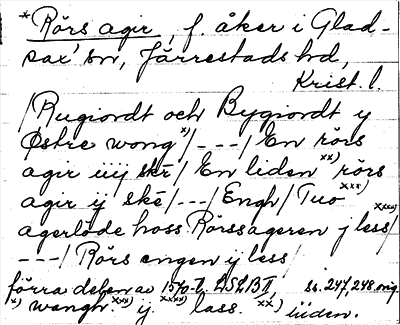 *Rörs agir, f. åker i Glad-
sax' sn, Järrestads hd,
Krist. l.
/Rugiordt och Bygiordt y
Østre wong*)/---/En rörs
agir iiij skr/ En liden xx) rörs
agir ij ské/---/Engh/Tuo xxx)
agerløde hoss Rörssageren j less xxxx)/
---/Rörs engen ij less/
förra delen av 1570-t. LSLB II, ss. 247, 248 orig.
x) wangh. xxx) ij xxxx) lass. xx) iiiden.